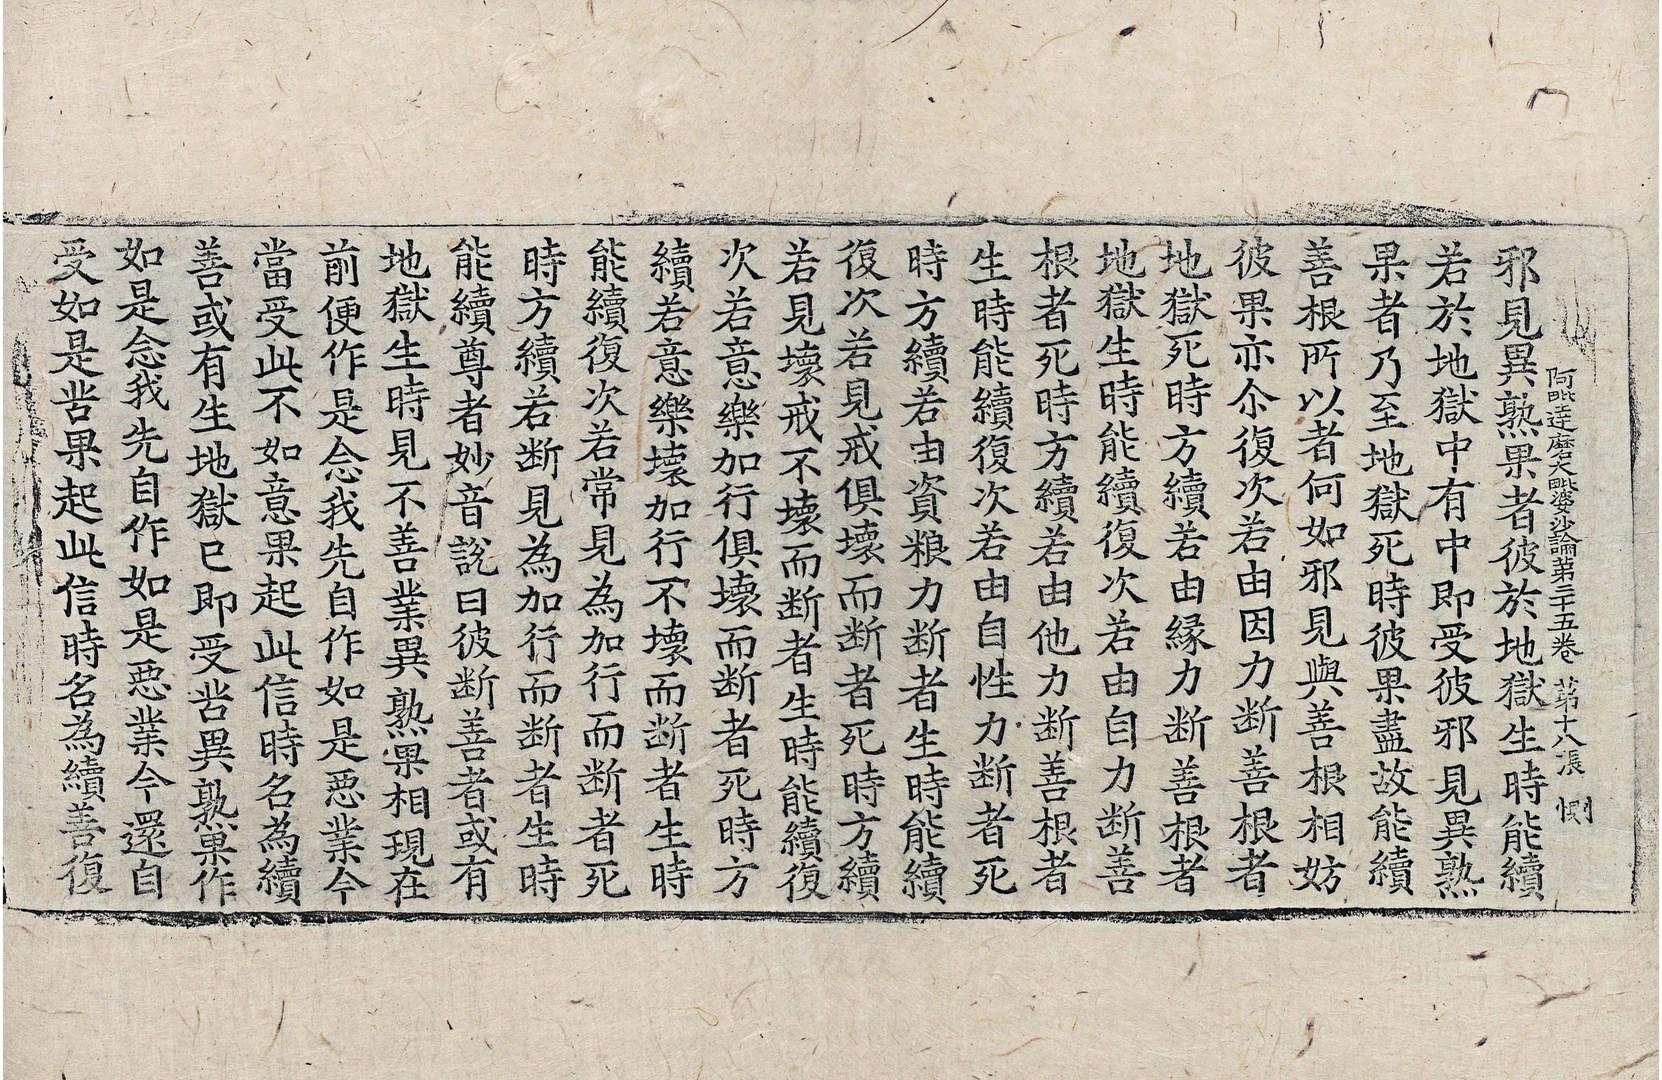 阿毗達磨大毗婆沙論第三十五卷 第十八張 惻
邪見異熟果者彼於地獄生時能續
若於地獄中有中即受彼邪見異熟
果者乃至地獄死時彼果盡故能續
善根所以者何如邪見與善根相妨
彼果亦尒復次若由因力断善根者
地獄死時方續若由縁力断善根者
地獄生時能續復次若由自力断善
根者死時方續若由他力断善根者
生時能續復次若由自性力断者死
時方續若由資粮力断者生時能續
復次若見戒俱壞而断者死時方續
若見壞戒不壞而断者生時能續復
次若意樂加行俱壞而断者死時方
續若意樂壞加行不壞而断者生時
能續復次若常見為加行而断者死
時方續若断見為加行而断者生時
能續尊者妙音說曰彼断善者或有
地獄生時見不善業異熟果相現在
前便作是念我先自作如是惡業今
當受此不如意果起此信時名為續
善或有生地獄已即受苦異熟果作
如是念我先自作如是惡業今還自
受如是苦果起此信時名為續善復